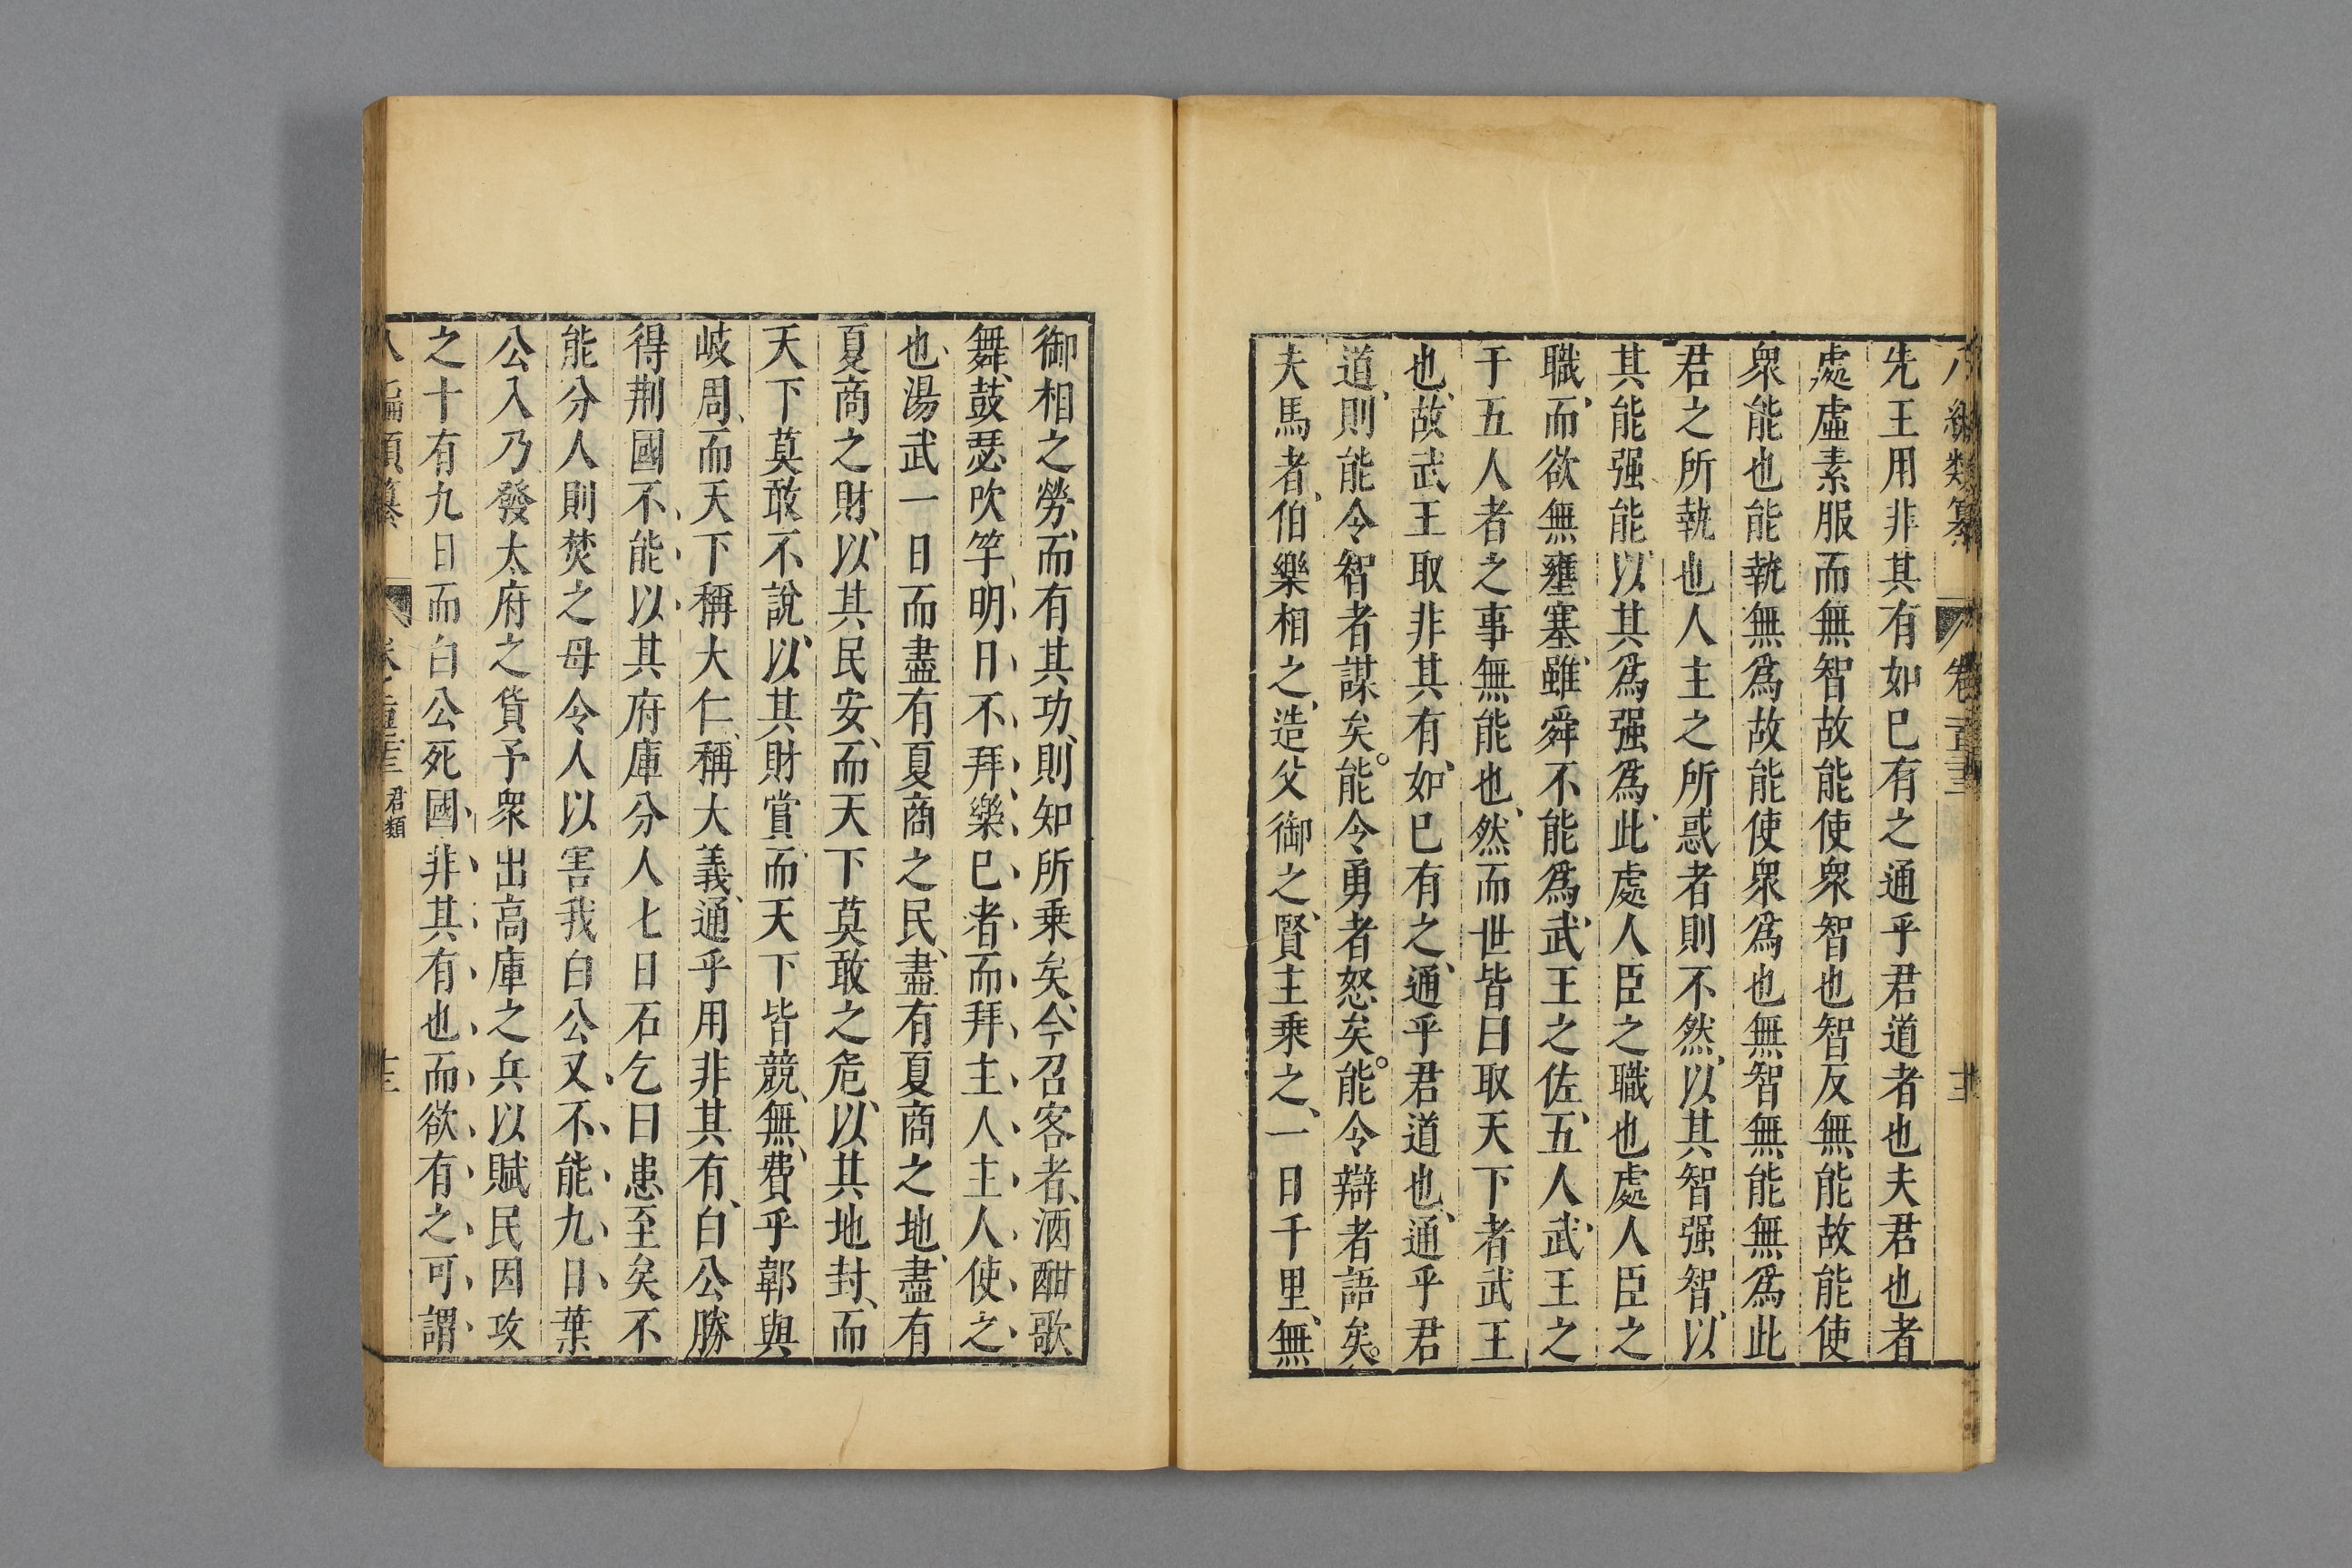 八編類纂 卷
先王用非其有如已有之通乎君道者也夫君也者
處虛素服而無智故能使衆智也智反無能故能使
衆能也能執無爲故能使衆爲也無智無能無爲此
君之所執也人主之所惑者則不然、以其智强智、以
其能强能、以其爲强爲、此處人臣之職也處人臣之
職、而欲無壅塞、雖舜不能爲、武王之佐、五人、武王之
于五人者之事無能也、然而世皆曰取天下者武王
也、故武王取非其有、如已有之、通乎君道也、通乎君
道、則能令智者謀矣。能令勇者怒矣。能令辯者語矣。
夫馬者、伯樂相之、造父御之、賢主乘之、一日千里、無
御相之勞、而有其功、則知所乘矣、今召客者、酒酣歌
舞、鼓瑟吹竽、明日不拜樂已者、而拜主人、主人使之
也、湯武一日而盡有夏商之民、盡有夏商之地、盡有
夏商之財、以其民安、而天下莫敢之危、以其地封、而
天下莫敢不說、以其財賞、而天下皆競、無費乎鄣與
岐周、而天下稱大仁、稱大義、通乎用非其有、白公勝
得荆國不能以其府庫分人七日石乞曰患至矣不
能分人則焚之毋令人以害我白公又不能九日葉
公入乃發太府之貨予衆出高庫之兵以賦民因攻
之十有九日而白公死國非其有也而欲有之可謂
編類纂 君類